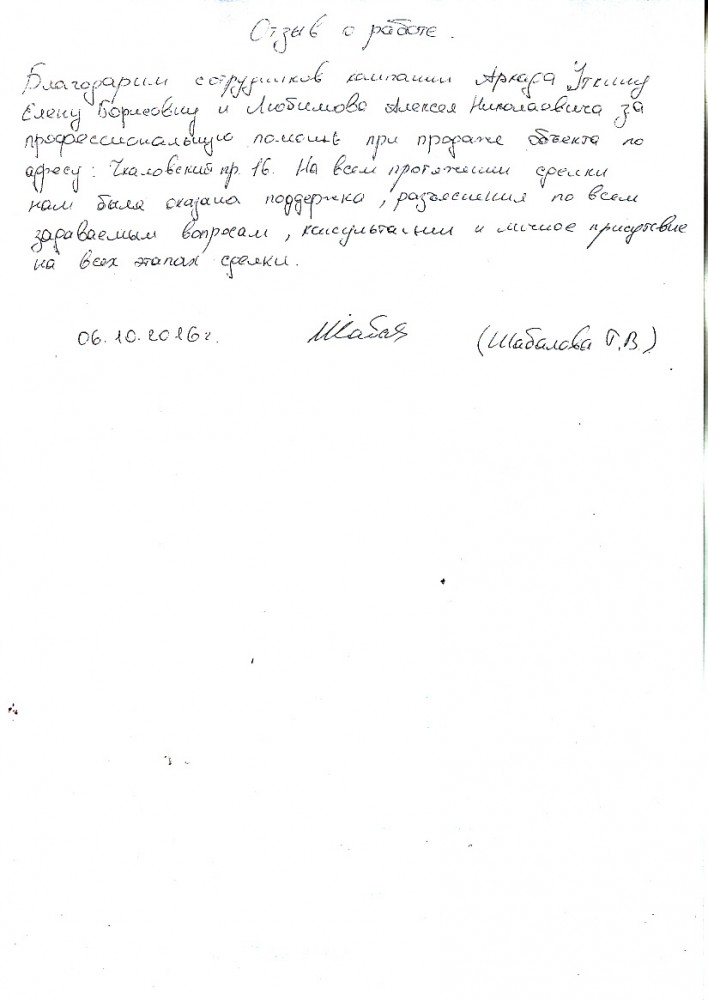 Отзыв о работе.
Благодарим сотрудников компании Аркада Уткину
Елену Борисовну и Любимова Алексея Николаевича за
профессиональную помощь при продаже объекта по
адресу: Чкаловский пр. 16. На всем протяжении сделки
нам была оказана поддержка, разъяснения по всем
задаваемым вопросам, консультации и личное присутствие
на всех этапах сделки.
06.10.2016г.
(Шабалова Т.В)